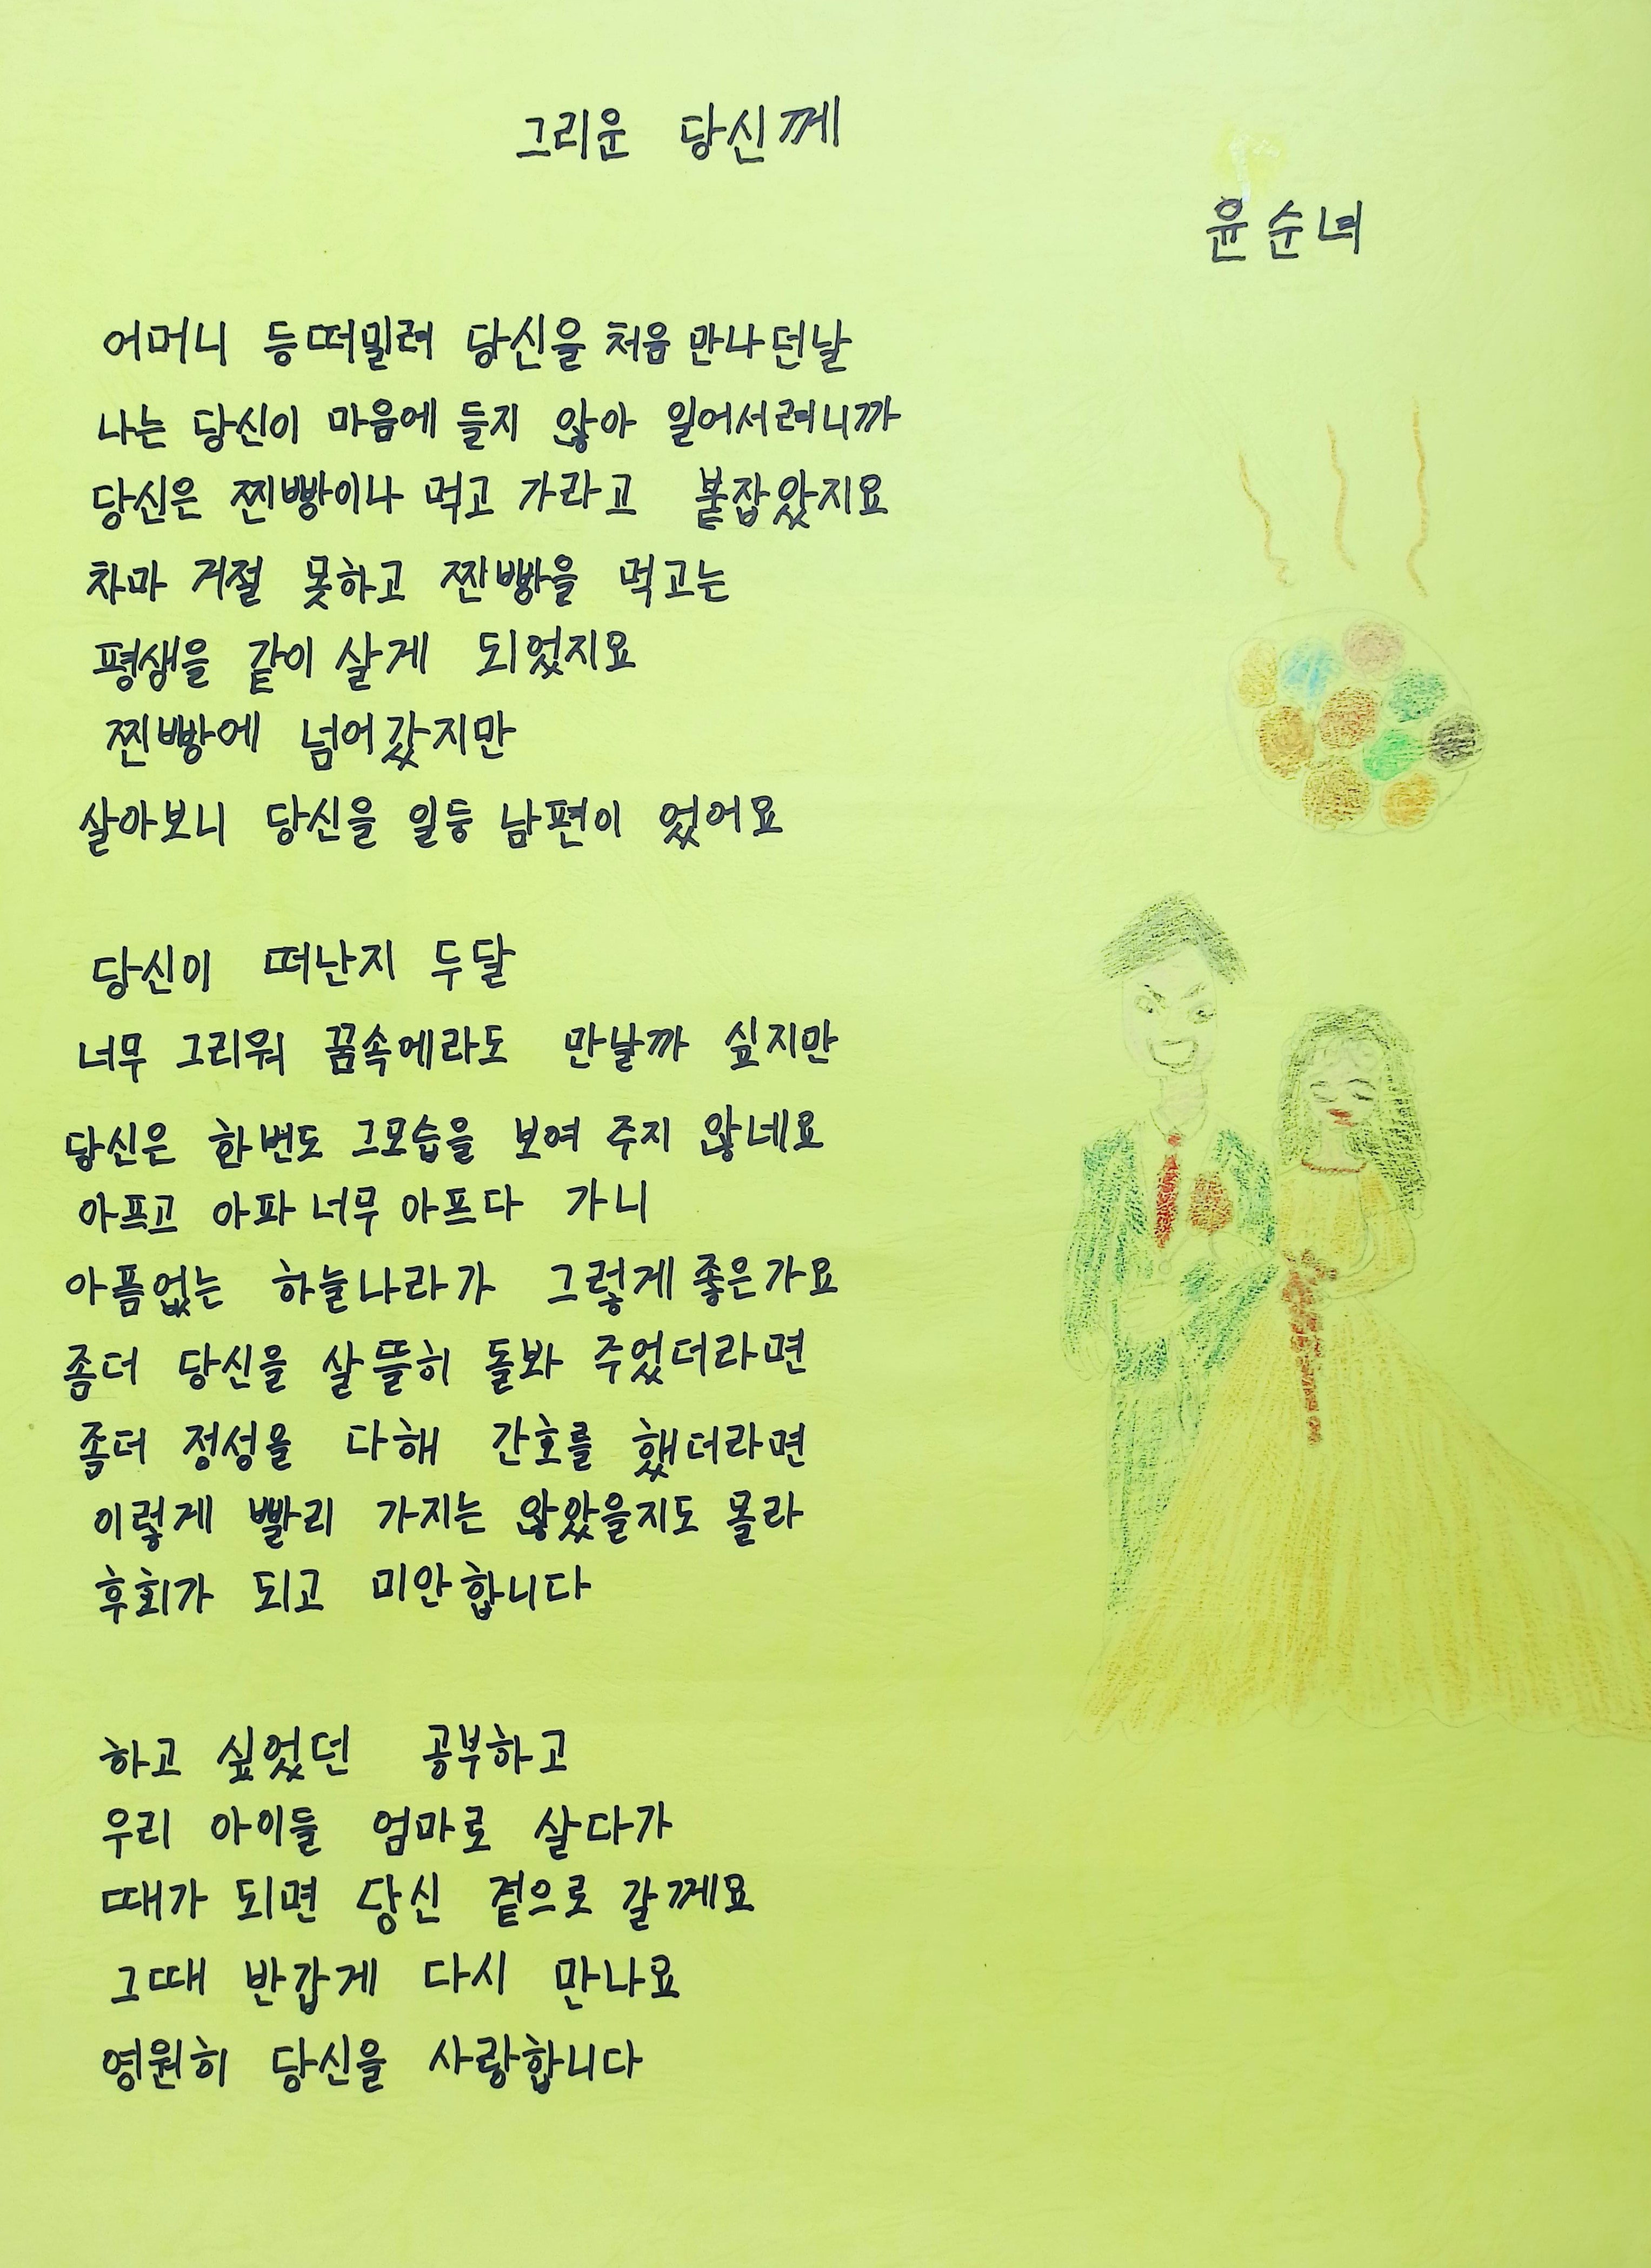 그리운 당신께
윤순녀
어머니 등떠밀려 당신을 처음 만나던날
나는 당신이 마음에 들지 않아 일어서려니까
당신은 찐빵이나 먹고 가라고 붙잡았지요
차마 거절 못하고 찐빵을 먹고는
평생을 같이 살게 되었지요
찐빵에 넘어갔지만
살아보니 당신을 일등 남편이 었어요
당신이 떠난지 두달
너무 그리워 꿈속에라도 만날까 싶지만
당신은 한번도 그모습을 보여 주지 않네요
아프고 아파 너무 아프다 가니
아픔없는 하늘나라가 그렇게 좋은가요
좀더 당신을 살뜰히 돌봐 주었더라면
좀더 정성을 다해 간호를 했더라면
이렇게 빨리 가지는 않았을지도 몰라
후회가 되고 미안합니다
하고 싶었던 공부하고
우리 아이들 엄마로 살다가
때가 되면 당신 곁으로 갈께요
그때 반갑게 다시 만나요
영원히 당신을 사랑합니다